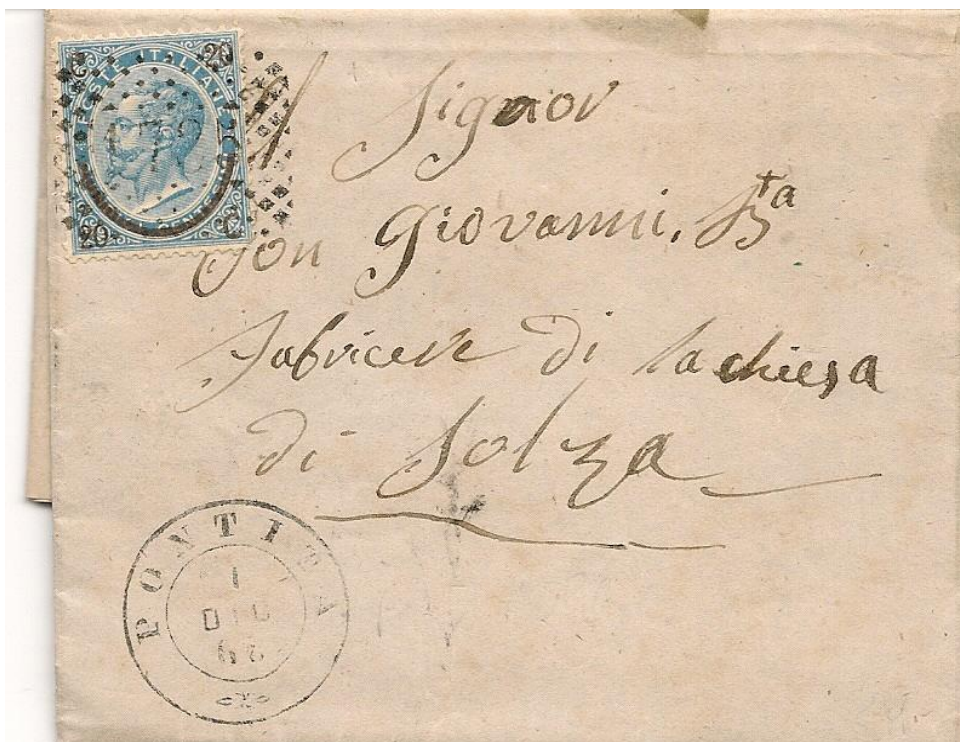 POSTE ITALIANE
20
20
20
Al Signor
Don Giovanni. Bta
Fabricere di la chiesa
di Solza
PONTITA
1
DIC
66